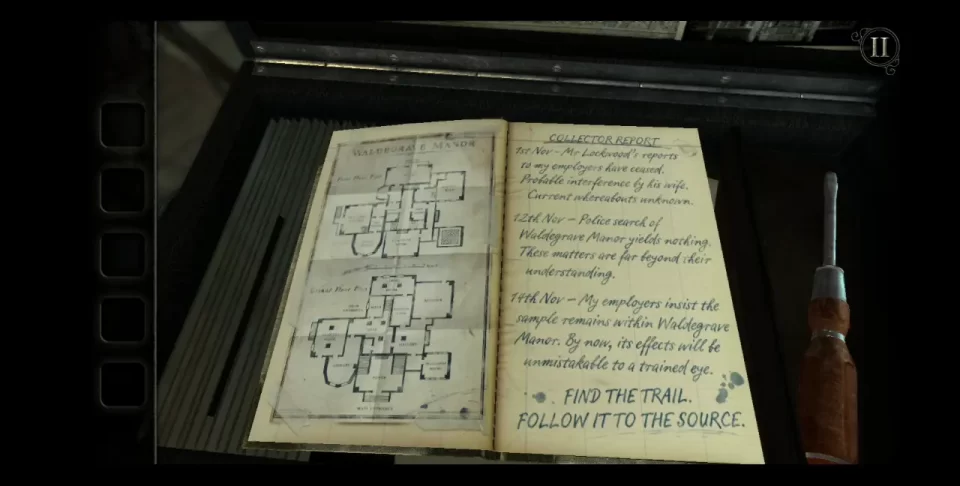 WALDEGRAVE MANOR
MAIN ENTRANCE
COLLECTOR REPORT
1st Nov – Mr Lockwood's reports
to my employers have ceased.
Probable interference by his wife.
Current whereabouts unknown.
12th Nov – Police search of
Waldegrave Manor yields nothing.
These matters are far beyond their
understanding.
14th Nov – My employers insist the
sample remains within Waldegrave
Manor. By now, its effects will be
unmistakable to a trained eye.
FIND THE TRAIL.
FOLLOW IT TO THE SOURCE.
II